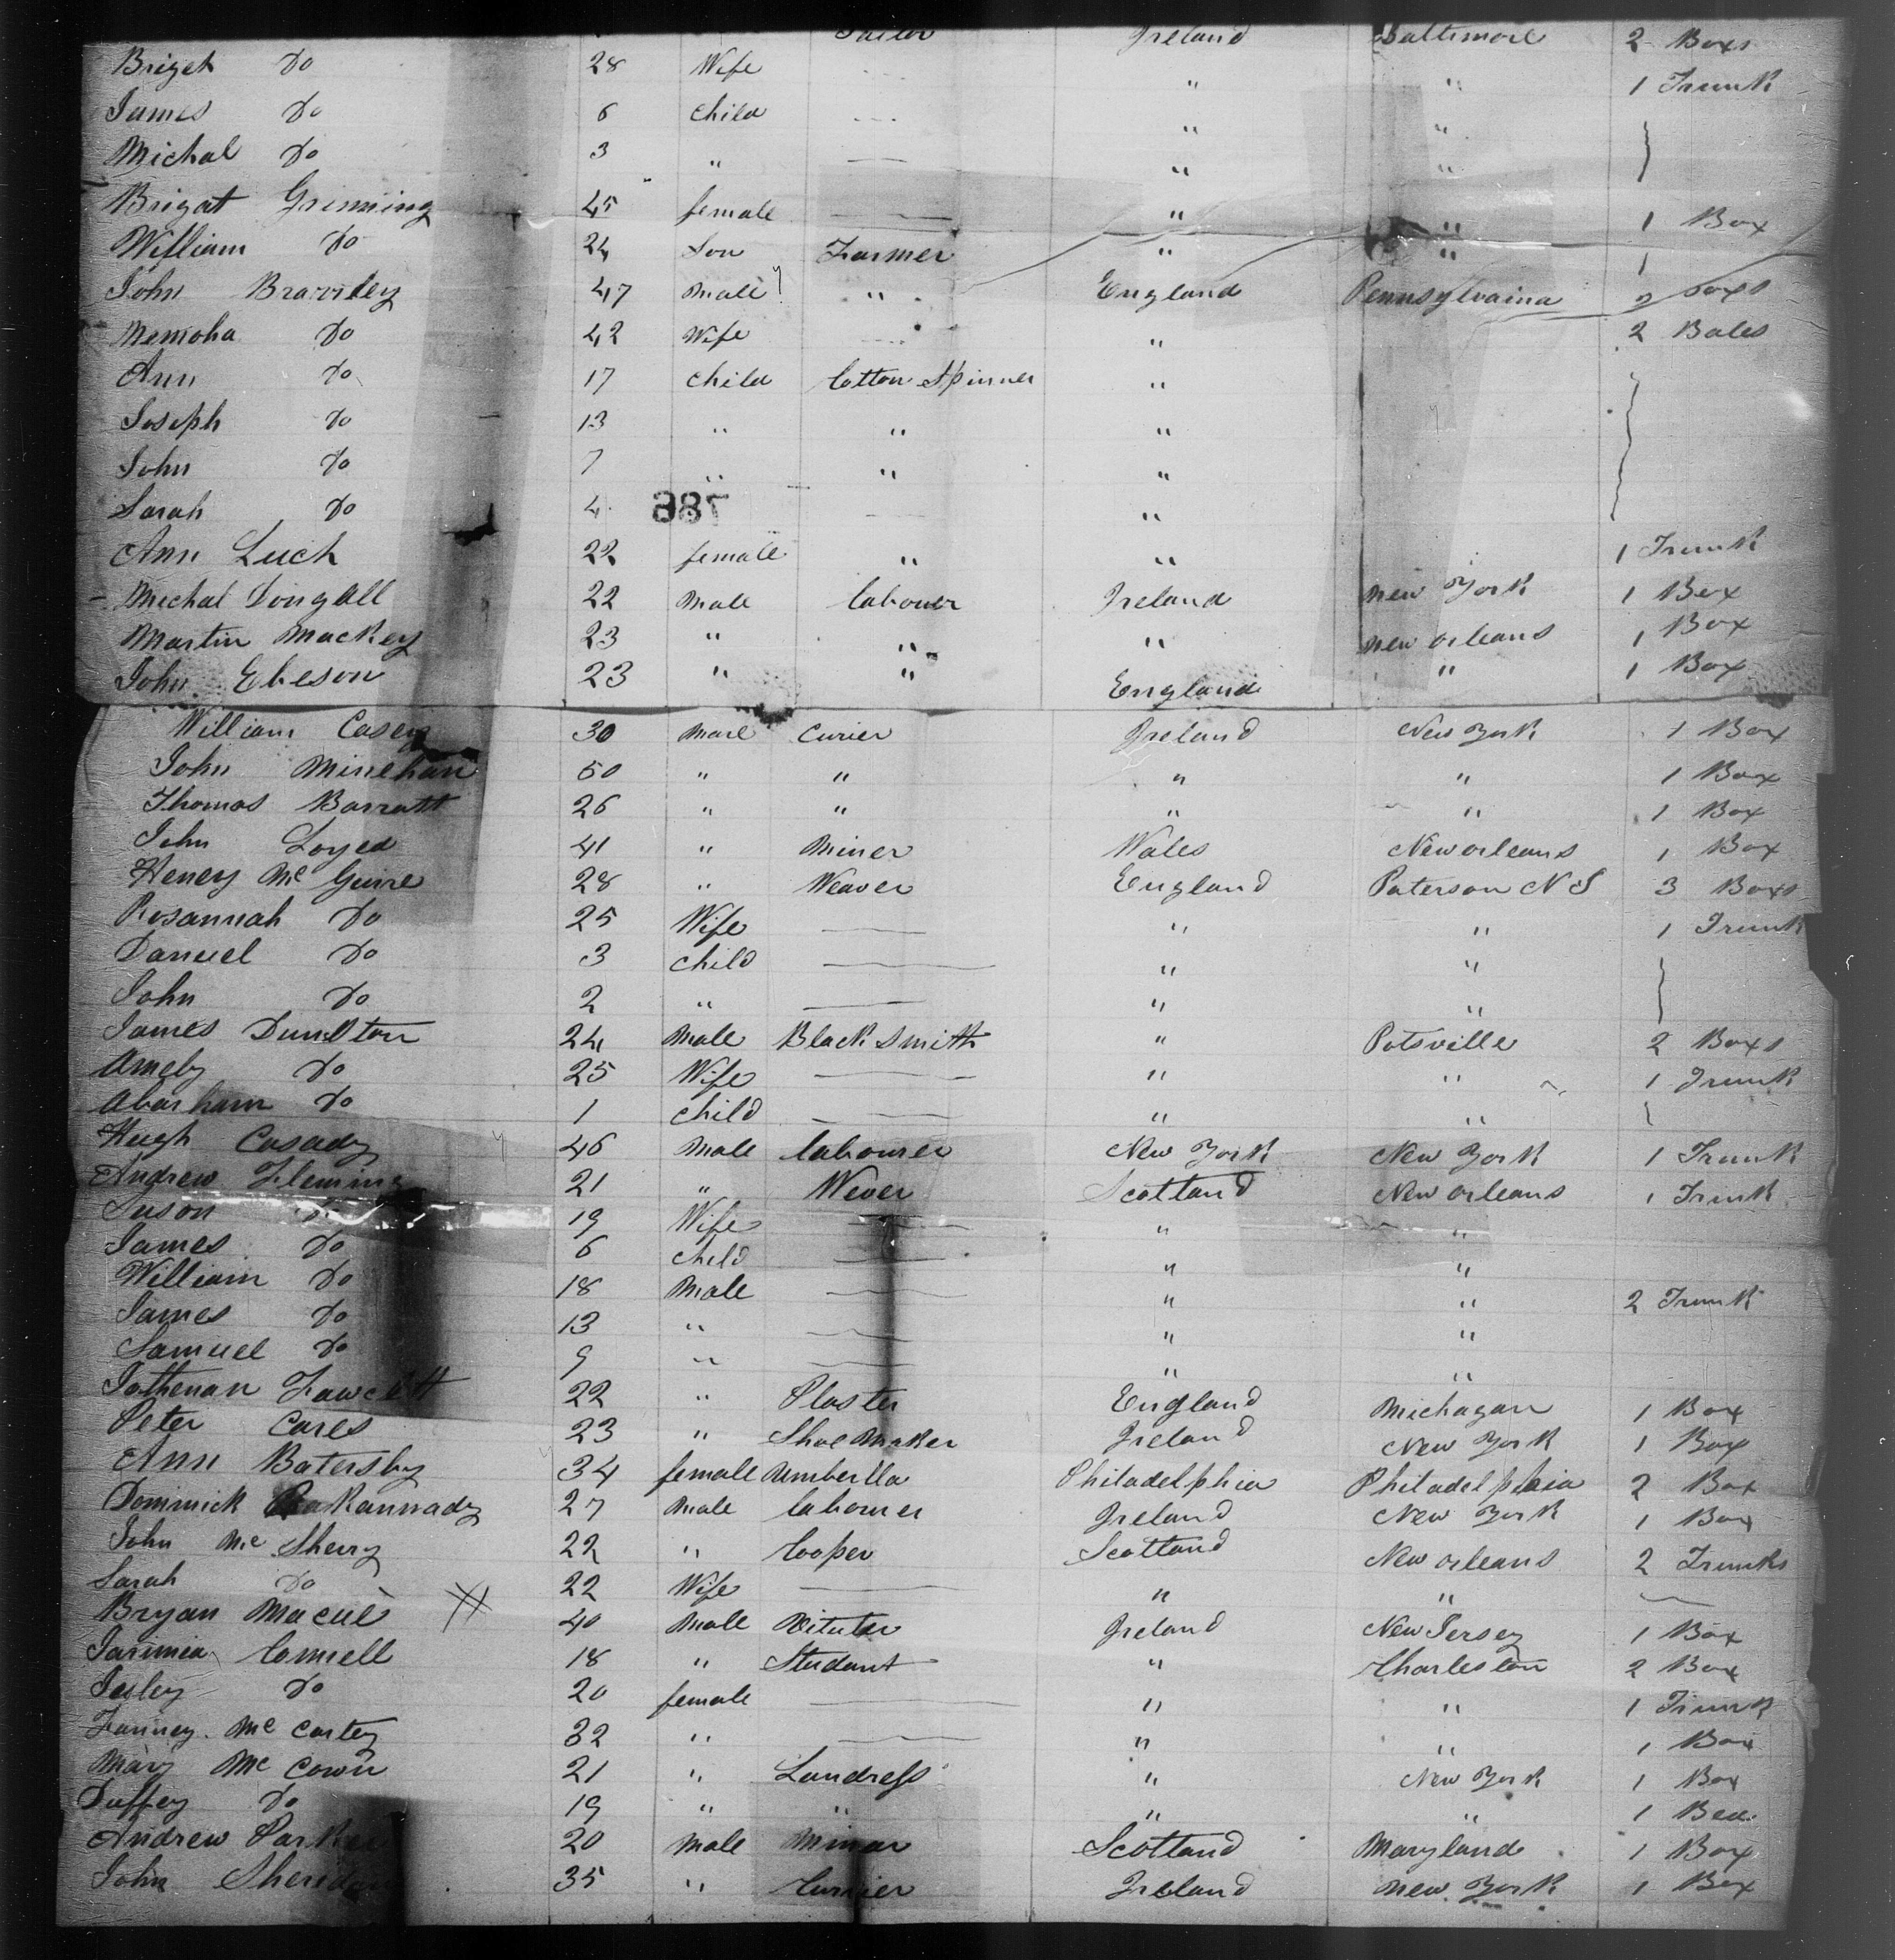 Tailor Ireland Baltimore 2 Boxs
Briget Do 28 Wife " " 1 Trunk
James Do 6 Child " "
Michal Do 3 " " "
Brigat 45 female " " 1 Box
William Do 24 Son Farmer " " 1
John 47 Male " England Pennsylvaina 2 Boxs
Do 42 Wife " 2 Bales
Ann Do 17 Child Cotton Spinner "
Joseph Do 13 " " "
John Do 7 " " "
Sarah Do 4 "
786
Ann Luch 22 female " " 1 Trunk
Michal Dongall 22 Male labouer Ireland new York 1 Box
Martin Mackey 23 " " " new orleans 1 Box
John Ebeson 23 " " England " 1 Box
William Casey 30 Male Curier Ireland New York 1 Box
John Minehan 50 " " " " 1 Box
Thomas Barratt 26 " " " " 1 Box
John Loyed 41 " Miner Wales New orleans 1 Box
Henery Mc Guire 28 " Weaver England Paterson N J 3 Boxs
Rosannah Do 25 Wife " " 1 Trunk
Danuel Do 3 child " "
John Do 2 " " "
James Dunlton 24 Male Black Smith " Potsville 2 Boxs
Amely Do 25 Wife " " 1 Trunk
Abarham Do 1 child " "
Hugh Casady 46 Male labourer New York New York 1 Trunk
Andrew Fleming 21 " Wever Scotland New orleans 1 Trunk
Suson Do 19 Wife " "
James Do 6 child " "
William Do 18 Male " " 2 Trunk
James Do 13 " " "
Samuel Do 9 " " "
Jothenan Fawcett 22 " Plaster England Michagan 1 Box
Peter Cares 23 " Shoe Maker Ireland New York 1 Box
Ann Batersby 34 female Umberlla Philadelphia Philadelphia 2 Box
Dominick 27 Male labourer Ireland New York 1 Box
John Mc Sherry 22 " Cooper Scotland New orleans 2 Trunks
Sarah Do 22 Wife " "
Bryan Macue 40 Male Ireland New Jersey 1 Box
Jarimia Connell 18 " Studant " Charleston 2 Box
Do 20 female " " 1 Trunk
Fanney Mc Cartey 32 " " " 1 Box
Mary Mc Cown 21 " Landress " New York 1 Box
Duffey Do 19 " " " " 1 Bed
Andrew Parker 20 Male Minar Scotland Maryland 1 Box
John Sheridan 35 " Currier Ireland new York 1 Box